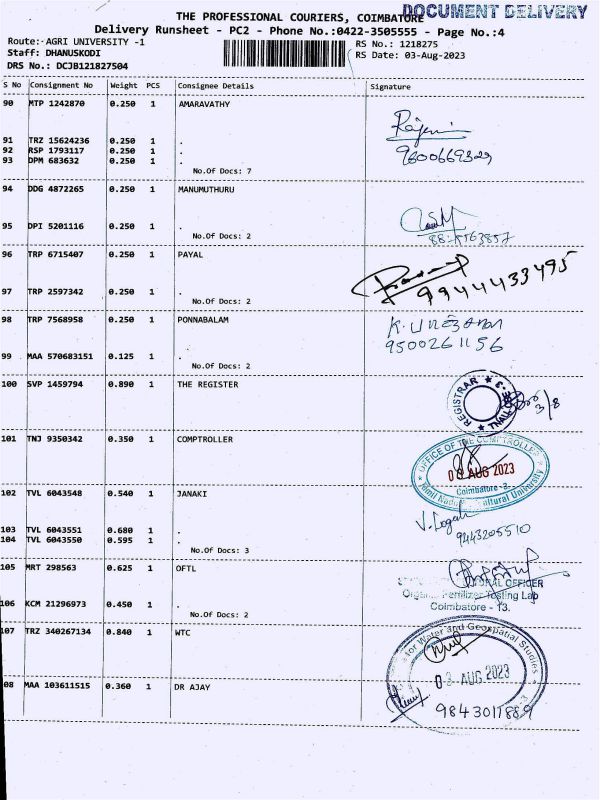 THE PROFESSIONAL COURIERS, COIMBATORE
DOCUMENT DELIVERY
Delivery Runsheet - PC2 - Phone No.:0422-3505555 - Page No.:4
Route:-AGRI UNIVERSITY -1
RS No.: 1218275
Staff: DHANUSKODI
RS Date: 03-Aug-2023
DRS No.: DCJB121827504
S No Consignment No Weight PCS Consignee Details Signature
90 MTP 1242870 0.250 1 AMARAVATHY
91 TRZ 15624236 0.250 1 .
92 RSP 1793117 0.250 1 .
93 DPM 683632 0.250 1 .
No.Of Docs: 7
9600669329
94 DDG 4872265 0.250 1 MANUMUTHURU
95 DPI 5201116 0.250 1 .
No.Of Docs: 2
96 TRP 6715407 0.250 1 PAYAL
97 TRP 2597342 0.250 1 .
No.Of Docs: 2
9944433495
98 TRP 7568958 0.250 1 PONNABALAM
9500261156
99 MAA 570683151 0.125 1 .
No.Of Docs: 2
100 SVP 1459794 0.890 1 THE REGISTER
REGISTRAR
3/8
101 TNJ 9350342 0.350 1 COMPTROLLER
OFFICE OF THE COMPTROLLER
03 AUG 2023
Coimbatore -3.
Tamil Nadu Agricultural University
102 TVL 6043548 0.540 1 JANAKI
103 TVL 6043551 0.680 1 .
104 TVL 6043550 0.595 1 .
No.Of Docs: 3
9443205510
105 MRT 298563 0.625 1 OFTL
OFFICER
Fertilizer Testing Lab
Coimbatore - 13.
106 KCM 21296973 0.450 1 .
No.Of Docs: 2
107 TRZ 340267134 0.840 1 WTC
for Water and Geospatial Studies
03 AUG 2023
08 MAA 103611515 0.360 1 DR AJAY
9843011889